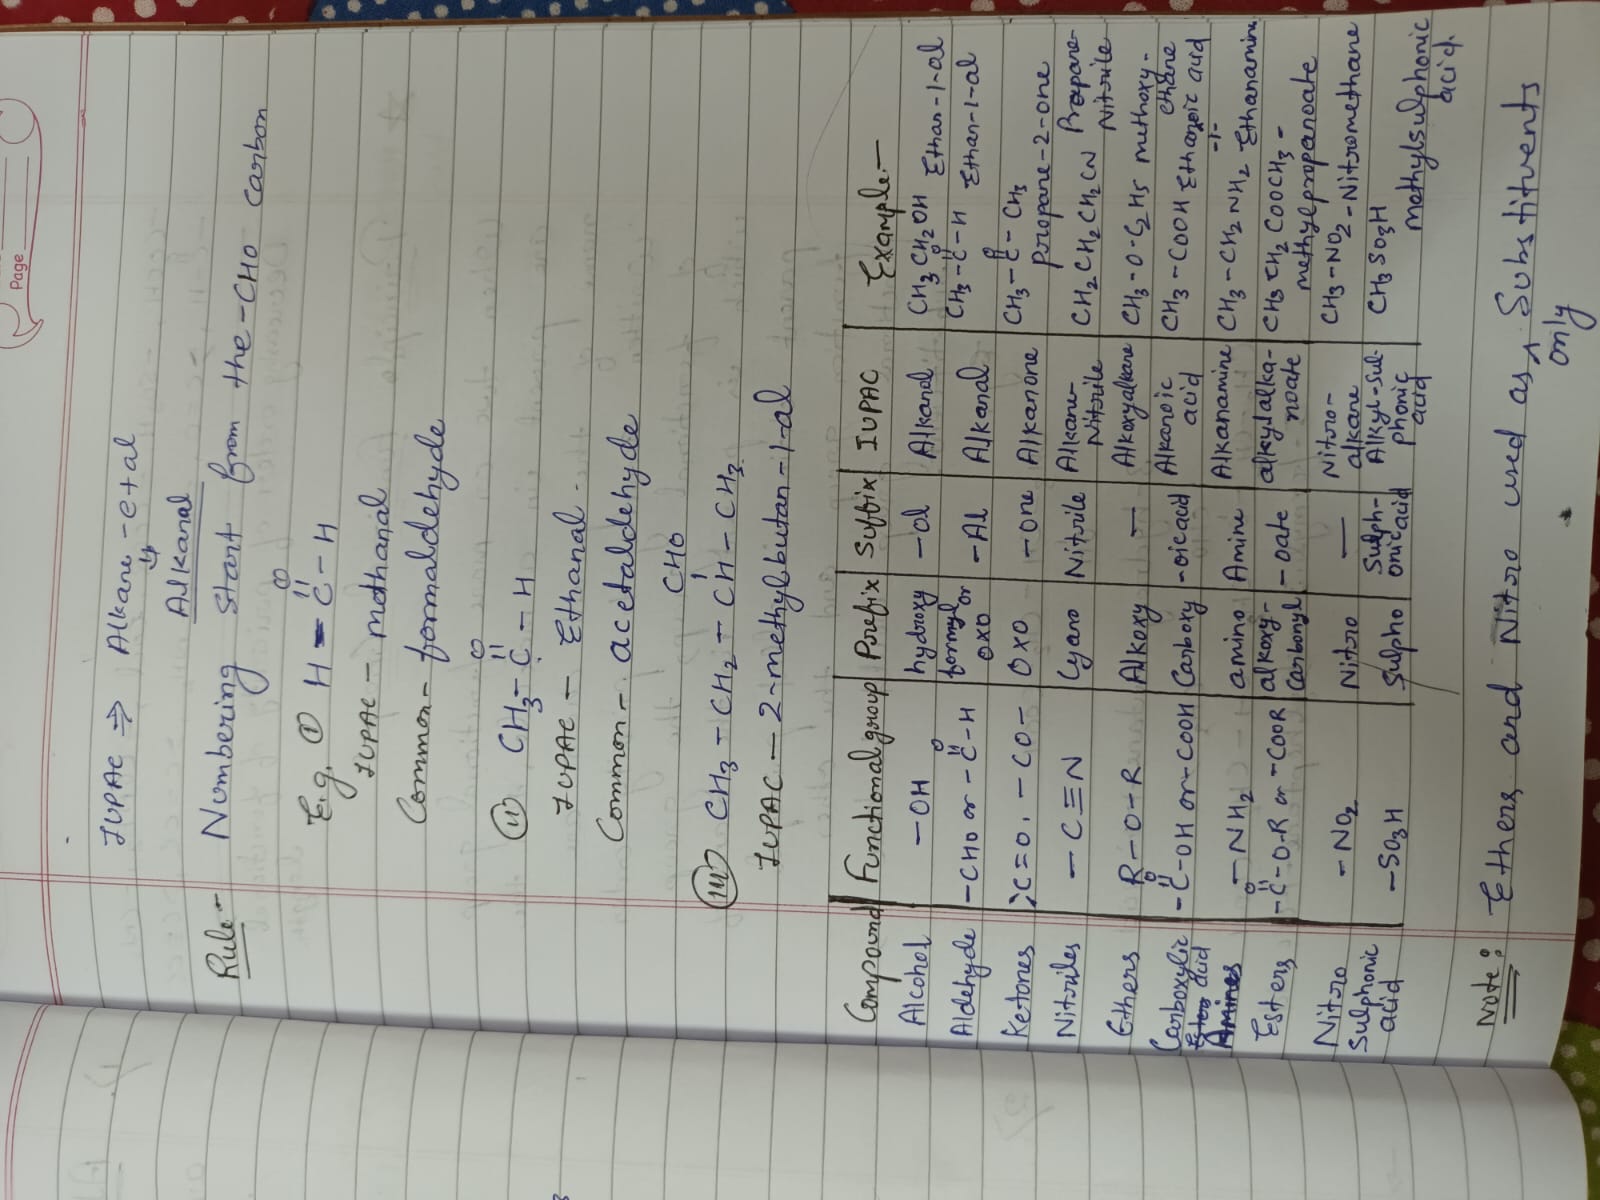 Page
IUPAC ⇒ Alkane - e + al
↳
Alkanal
Rule - Numbering start from the -CHO carbon
E.g. (i) H - C - H
O
IUPAC - methanal
Common - formaldehyde
(ii) CH3 - C - H
O
IUPAC - Ethanal.
Common - acetaldehyde
CHO
(iii) CH3 - CH2 - CH - CH3
IUPAC - 2-methylbutan-1-al
Compound Functional group Prefix Suffix IUPAC Example -
Alcohol -OH hydroxy -Ol Alkanol CH3CH2OH Ethan-1-ol
Aldehyde -CHO or -C-H formyl or oxo -Al Alkanal CH3-C-H Ethan-1-al
Ketones >C=O, -CO- Oxo -one Alkanone CH3-C-CH3 propane-2-one
Nitriles -C≡N Cyano Nitrile Alkane-Nitrile CH2CH2CH2CN Propane-Nitrile
Ethers R-O-R Alkoxy — Alkoxyalkane CH3-O-C2H5 methoxy-ethane
Carboxylic acid -C-OH or -COOH Carboxy -oic acid Alkanoic acid CH3-COOH Ethanoic acid
Amines -NH2 amino Amine Alkanamine CH3-CH2NH2 Ethan-1-amine
Esters -C-O-R or -COOR alkoxy-Carbonyl -oate alkylalka-noate CH3CH2COOCH3 - methylpropanoate
Nitro -NO2 Nitro — Nitro-alkane CH3-NO2-Nitromethane
Sulphonic acid -SO3H Sulpho Sulph-onic acid Alkyl-sul-phonic acid CH3SO3H methylsulphonic acid.
Note: Ethers and Nitro used as Substituents
only